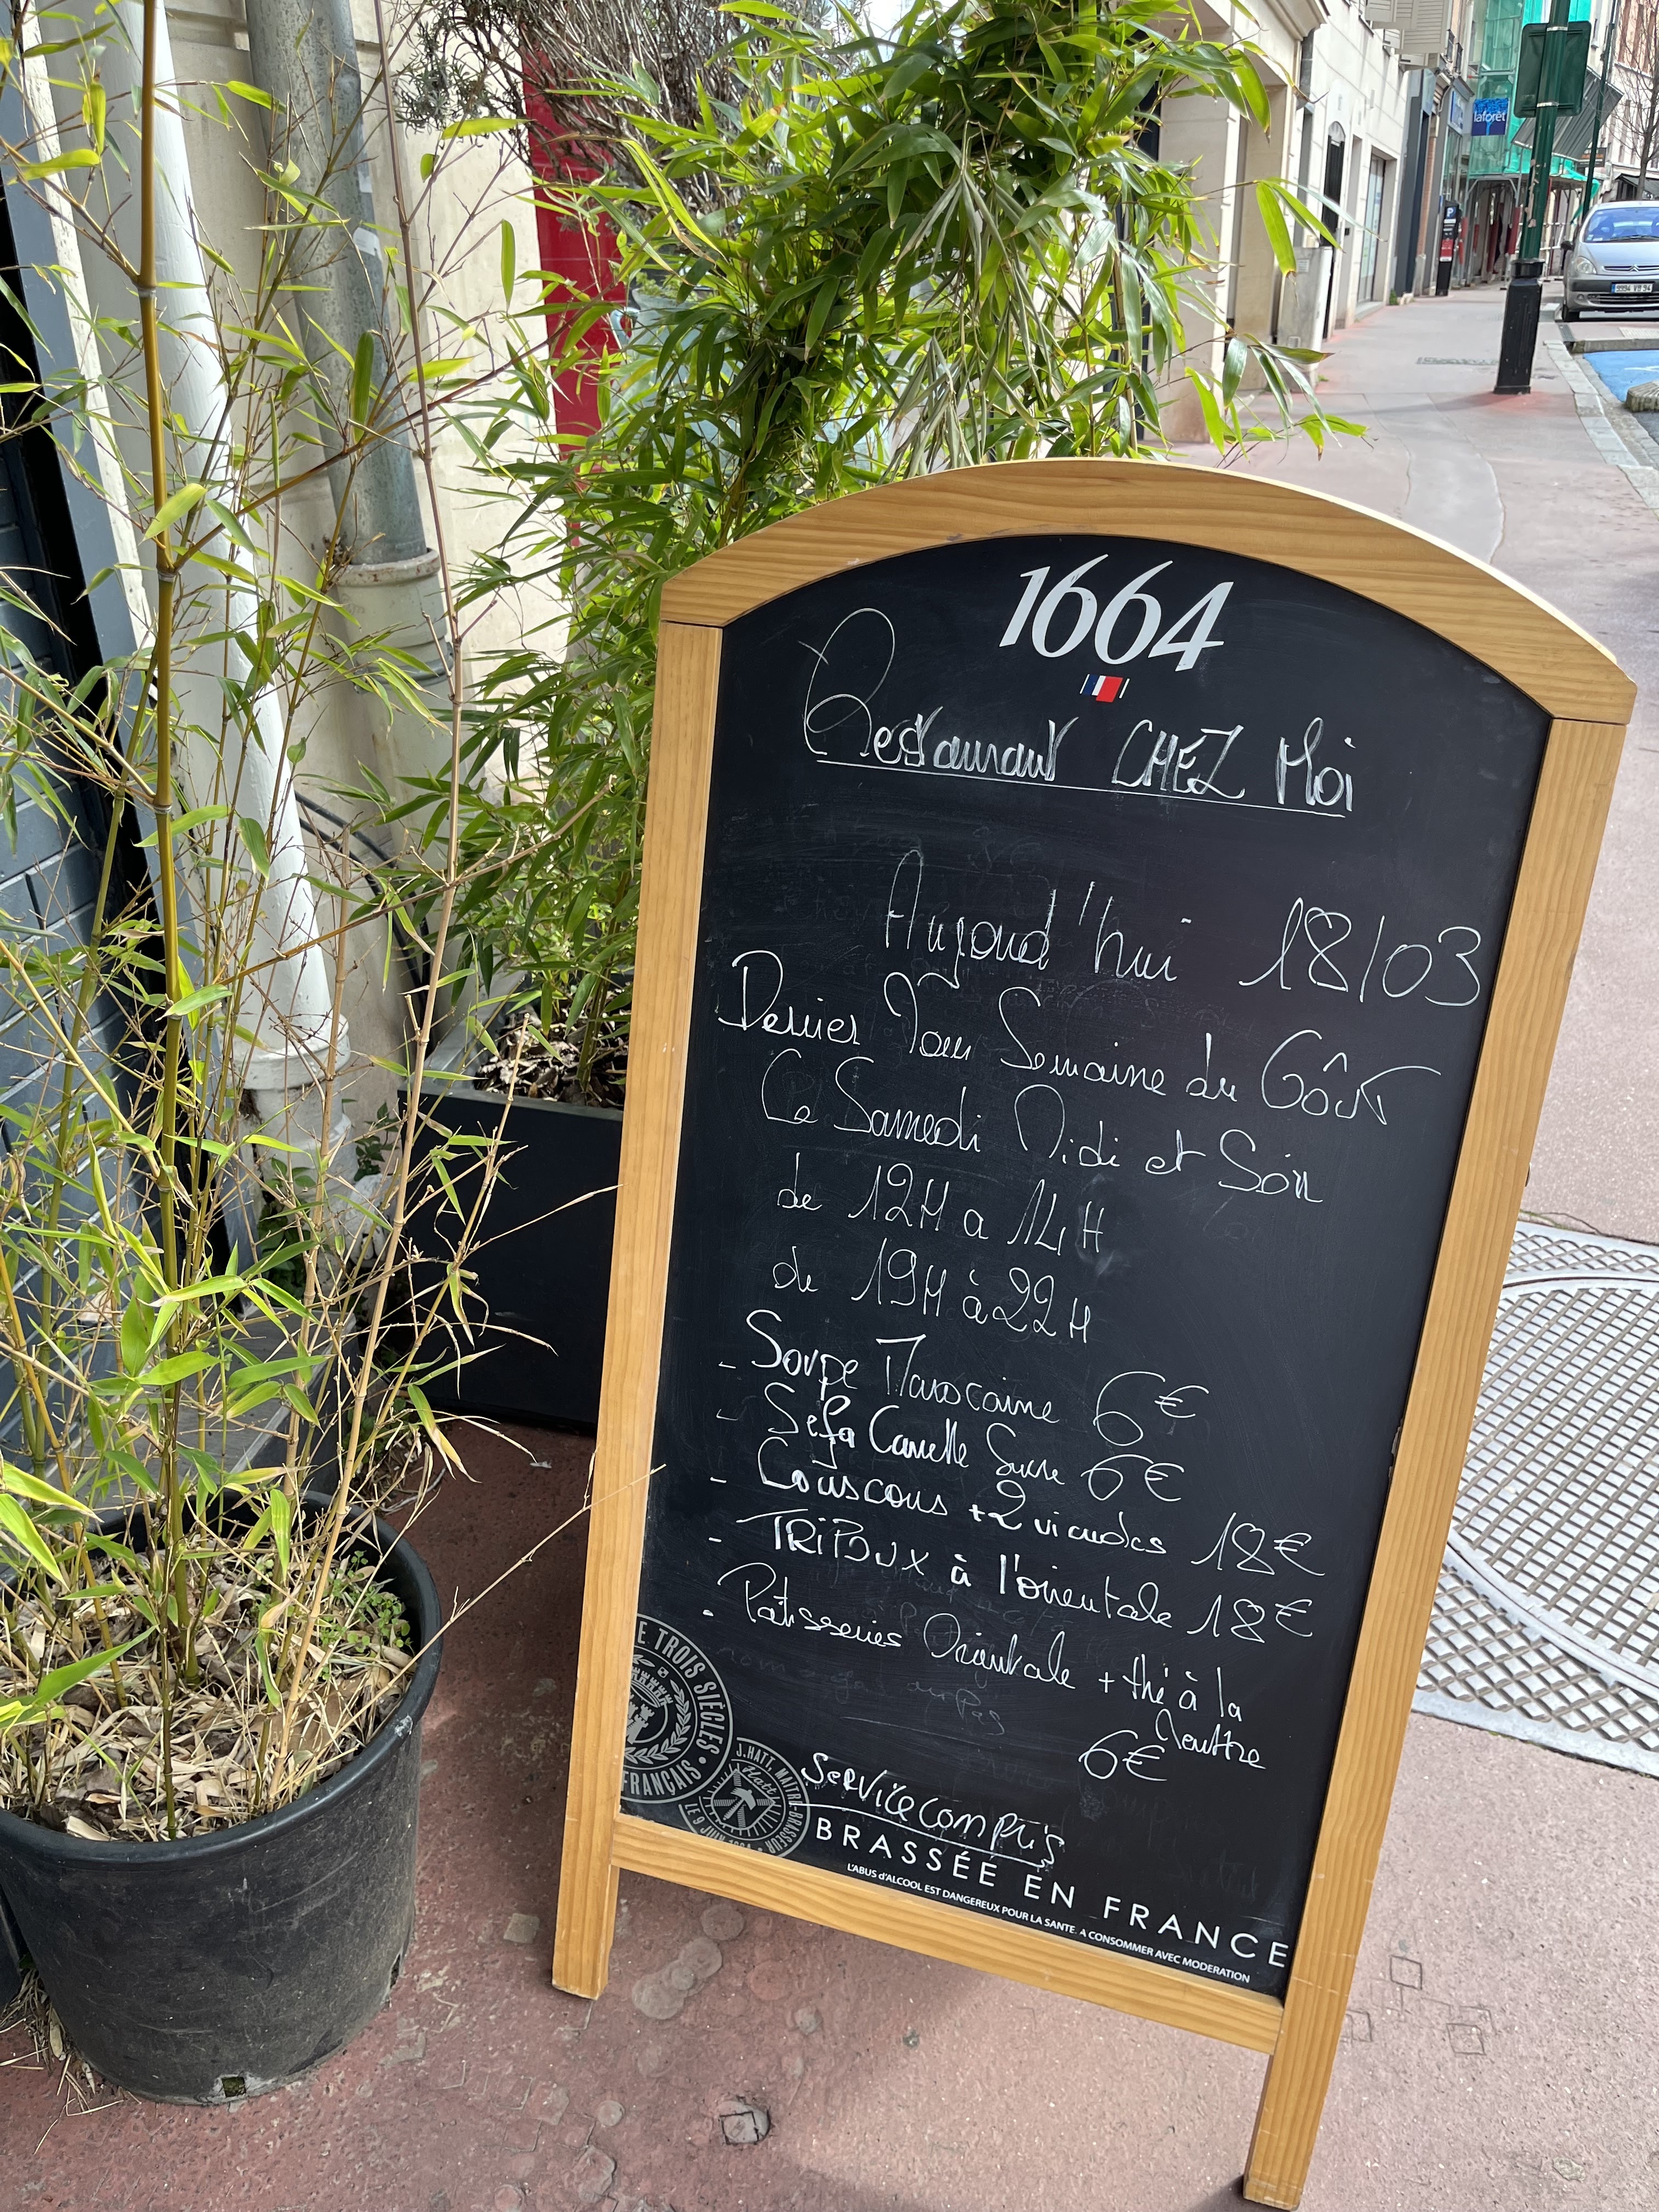 laforêt
1664
Restaurant CHEZ Moi
Aujourd'hui 18/03
Dernier Jour Semaine du Goût
Ce Samedi Midi et Soir
de 12H a 14H
de 19H à 22H
- Soupe Marocaine 6€
- Sefa Canelle Sucre 6€
- Couscous +2 viandes 18€
- TRIPOUX à l'orientale 18€
- Patisseries Orientale + thé à la
Menthe
6€
Service compris
E TROIS SIÈCLES •
FRANÇAIS •
J.HATT, MAITRE-BRASSEUR
Hatt
LE 9 JUIN
BRASSÉE EN FRANCE
L'ABUS d'ALCOOL EST DANGEREUX POUR LA SANTE. A CONSOMMER AVEC MODERATION